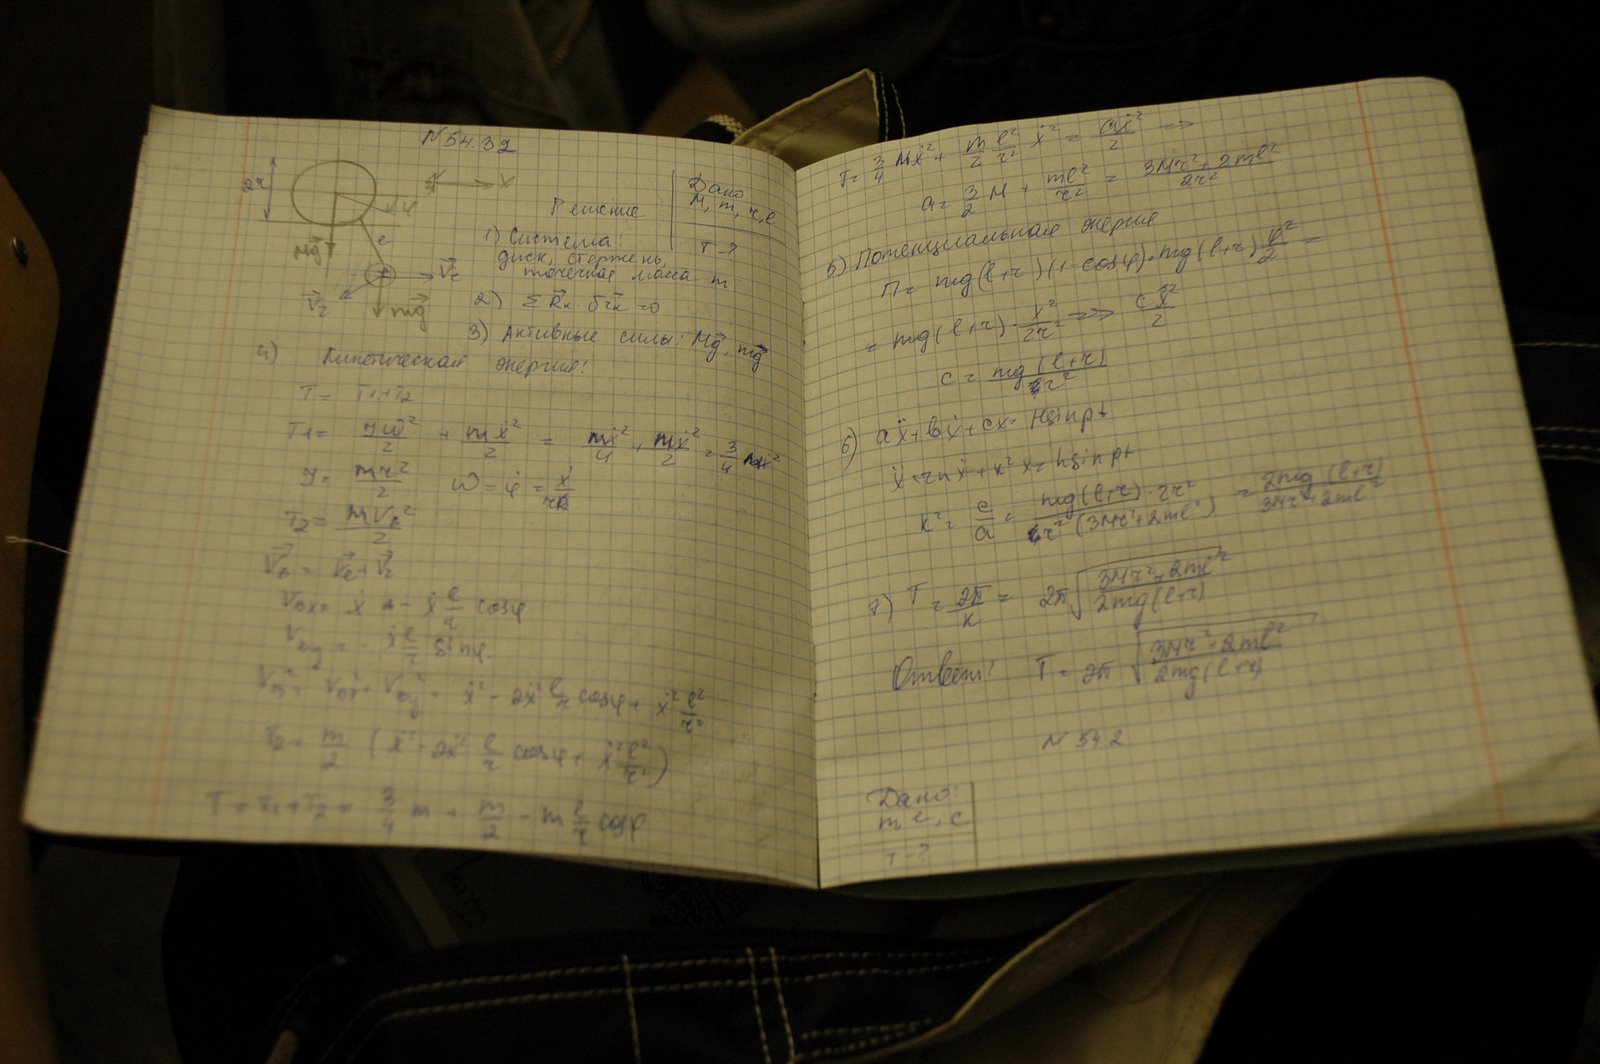 N 54.32
2r
x
φ
Mg
l
Vr
Ve
mg
Дано
M, m, r, l
T-?
Решение
1) Система:
диск, стержень,
точечная масса m
2) Σ Rк δrк = 0
3) Активные силы: Mg, mg
4) Кинетическая энергия:
T = T1+T2
T1 = Jω²/2 + mẋ²/2 = mẋ²/4 + mẋ²/2 = 3/4 mẋ²
J = mr²/2 ω = φ̇ = ẋ/r
T2 = MVв²/2
Vв = Ve + Vr
Vвx = ẋ - ẋ l/r cosφ
Vвy = - ẋ l/r sinφ
Vв² = Vвx² + Vвy² = ẋ² - 2ẋ² l/r cosφ + ẋ² l²/r²
T2 = m/2 (ẋ² - 2ẋ² l/r cosφ + ẋ² l²/r²)
T = T1 + T2 = 3/4 m + m/2 - m l/r cosφ
T = 3/4 Mẋ² + m/2 l²/r² ẋ² = aẋ²/2 =>
a = 3/2 M + ml²/r² = 3Mr² + 2ml²/2r²
5) Потенциальная энергия
П = mg(l+r)(1-cosφ) = mg(l+r) φ²/2 =
= mg(l+r) · x²/2r² => cx²/2
c = mg(l+r)/r²
6) aẍ + bẋ + cx = Hsinpt
ẍ + 2nẋ + k²x = hsinpt
k² = c/a = mg(l+r)·2r²/r²(3Mr²+2ml²) = 2mg(l+r)/3Mr²+2ml²
7) T = 2π/k = 2π √3Mr²+2ml²/2mg(l+r)
Ответ: T = 2π √3Mr²+2ml²/2mg(l+r)
N 54.2
Дано:
m l, c
T-?